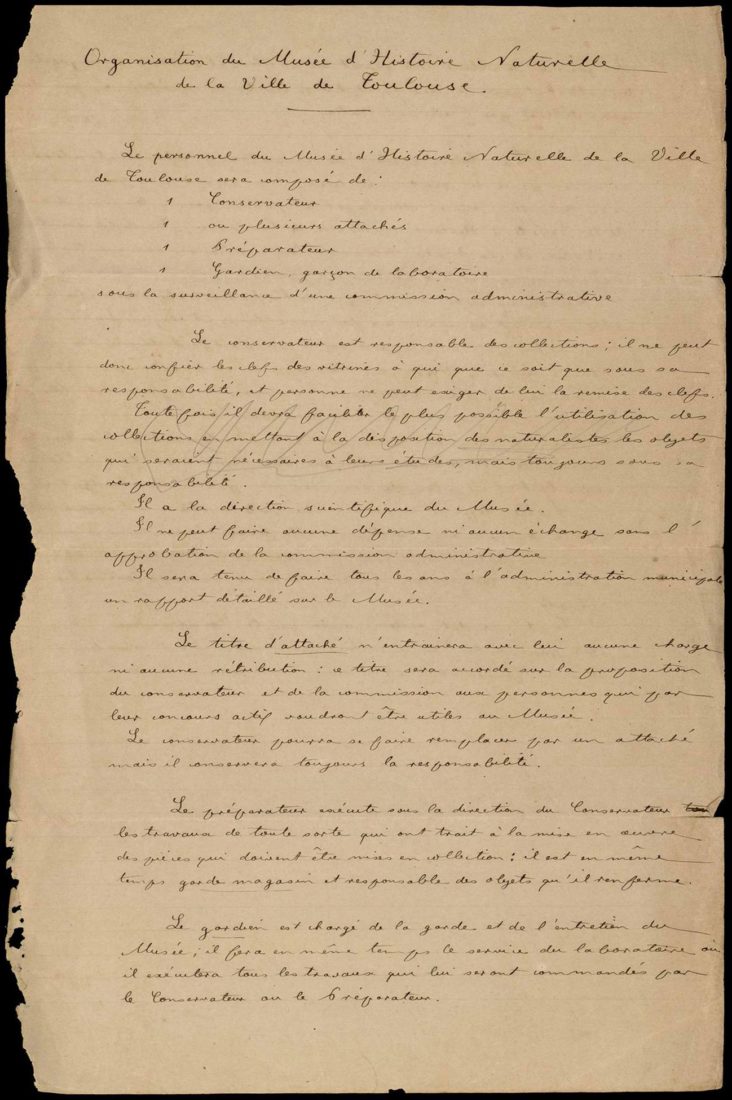 Organisation du Musée d'Histoire Naturelle
de la Ville de Toulouse.
Le personnel du Musée d'Histoire Naturelle de la Ville
de Toulouse sera composé de :
1 Conservateur
1 ou plusieurs attachés
1 Préparateur
1 Gardien, garçon de laboratoire
sous la surveillance d'une commission administrative
Le conservateur est responsable des collections ; il ne peut
donc confier les clefs des vitrines à qui que ce soit que sous sa
responsabilité, et personne ne peut exiger de lui la remise des clefs.
Toutefois il devra faciliter le plus possible l'utilisation des
collections en mettant à la disposition des naturalistes les objets
qui seraient nécessaires à leurs études, mais toujours sous sa
responsabilité.
Il a la direction scientifique du Musée.
Il ne peut faire aucune dépense ni aucun échange sans l'
approbation de la commission administrative
Il sera tenu de faire tous les ans à l'administration municipale
un rapport détaillé sur le Musée.
Le titre d'attaché n'entrainera avec lui aucune charge
ni aucune rétribution : ce titre sera accordé sur la proposition
du conservateur et de la commission aux personnes qui par
leur concours actif voudront être utiles au Musée.
Le conservateur pourra se faire remplacer par un attaché
mais il conservera toujours la responsabilité.
Le préparateur exécute sous la direction du Conservateur
les travaux de toute sorte qui ont trait à la mise en œuvre
des pièces qui doivent être mises en collection : il est en même
temps garde magasin et responsable des objets qu'il renferme.
Le gardien est chargé de la garde et de l'entretien du
Musée ; il fera en même temps le service du laboratoire où
il exécutera tous les travaux qui lui seront commandés par
le Conservateur ou le Préparateur.